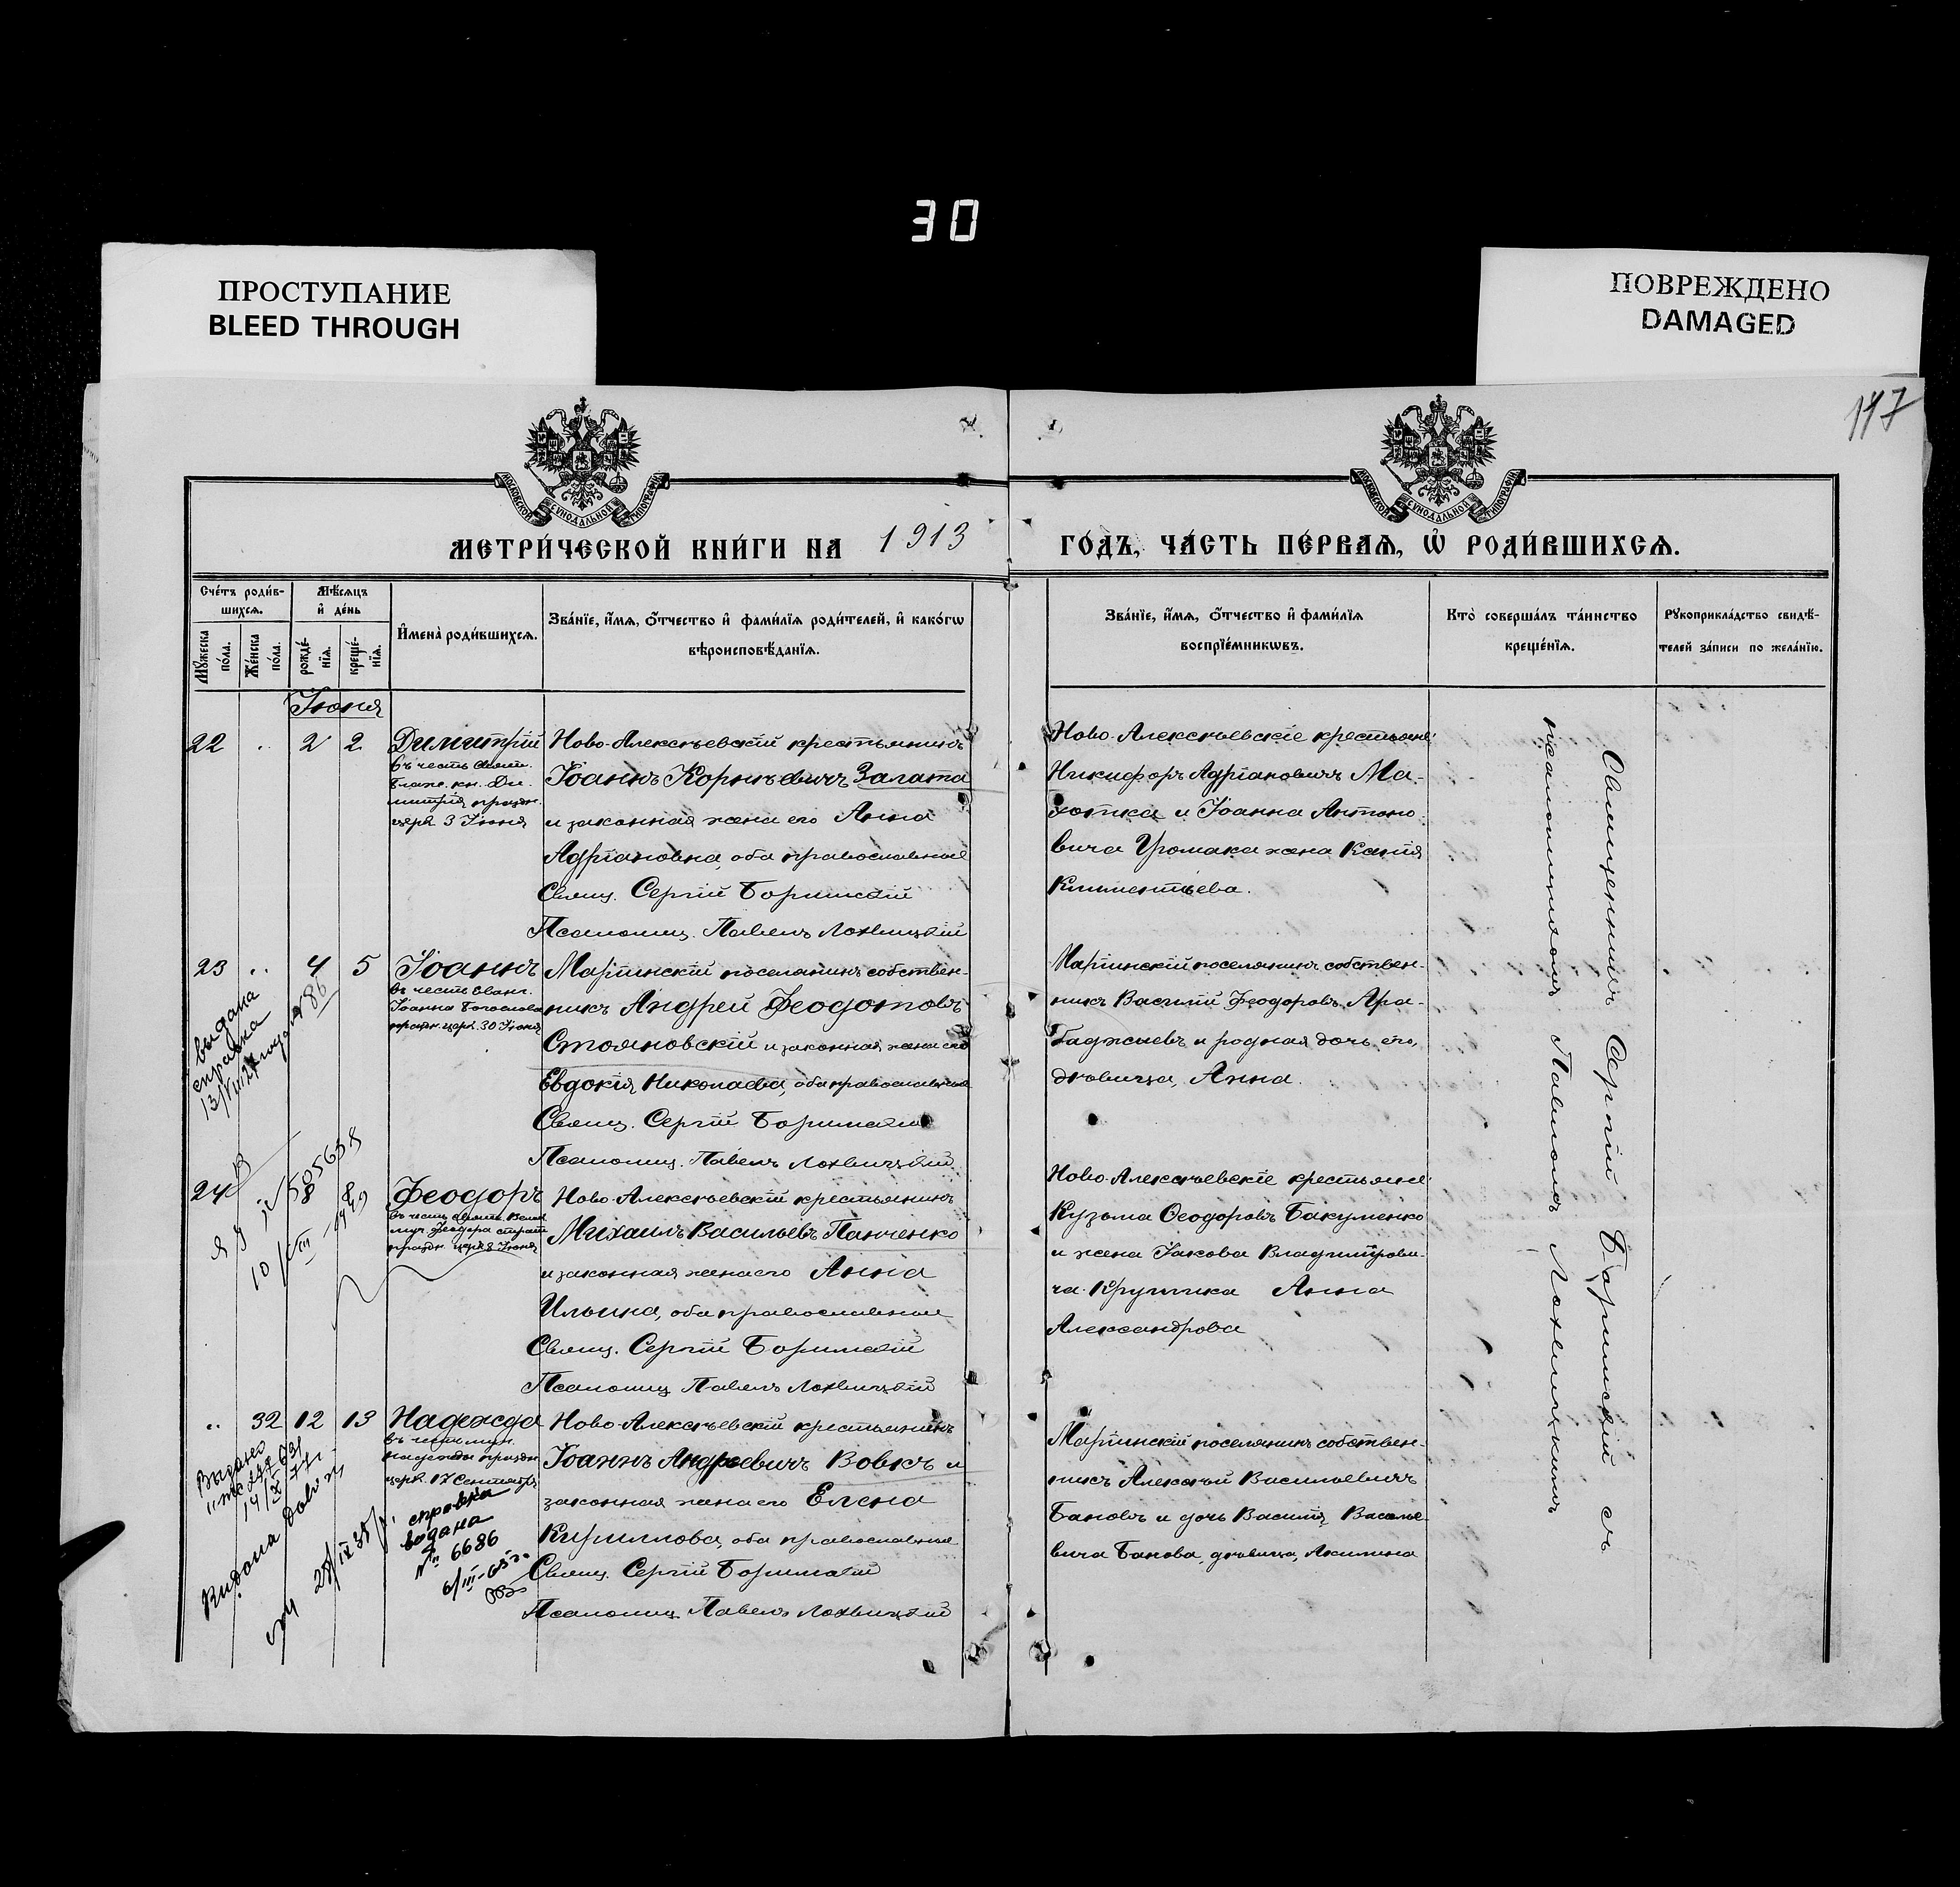 30
ПРОСТУПАНИЕ
BLEED THROUGH
ПОВРЕЖДЕНО
DAMAGED
МОСКОВСКОЙ СѴНОДАЛЬНОЙ ТИПОГРАФІИ
МОСКОВСКОЙ СѴНОДАЛЬНОЙ ТИПОГРАФІИ
МЕТРИ́ЧЕСКОЙ КНИ́ГИ НА 1913
ГО́ДЪ, ЧА́СТЬ ПЕ́РВАѦ, Ѡ҆ РОДИ́ВШИХСѦ.
Сче́тъ роди́в-
шихсѧ.
Мꙋ́жеска по́ла.
Же́нска по́ла.
Мѣ́сѧцъ
и҆ де́нь
рожде́-
нїѧ.
креще́-
нїѧ.
И҆мена̀ роди́вшихсѧ.
Зва́нїе, и҆́мѧ, ѻ҆́тчество и҆ фами́лїѧ роди́телей, и҆ како́гѡ
вѣроисповѣ́данїѧ.
Зва́нїе, и҆́мѧ, ѻ҆́тчество и҆ фами́лїѧ
воспрїе́мникѡвъ.
Кто̀ соверша́лъ та́инство
креще́нїѧ.
Рꙋкоприкла́дство свидѣ́-
телей за́писи по жела́нїю.
Іюня
22 .. 2 2
Димитрій
въ честь
благ. кн. Ди-
митрія праздн.
церк 3 Іюня
Ново-Алексѣевскій крестьянинъ
Іоаннъ Корнѣевичъ Залата
и законная жена его Анна
Адріановна, оба православные
Свящ. Сергій Боримскій
Псаломщ. Павелъ Лохвицкій
Ново-Алексѣевскіе крестьяне:
Никифоръ Адріановичъ Ма-
хотка и Іоанна Антоно-
вича Громака жена
Климентьева.
23 .. 4 5
Іоаннъ
въ честь Еванг.
Іоанна Богослова
праздн. церк. 30 Іюня
Маріинскій поселянинъ собствен-
никъ Андрей Ѳеодотовъ
Стояновскій и законная жена его
Евдокія Николаева, оба православные
Свящ. Сергій Боримскій
Псаломщ. Павелъ Лохвицкій
Маріинскій поселянинъ собствен-
никъ Василій Ѳеодоровъ Ара-
баджиевъ и родная дочь его,
дѣвица, Анна.
выдана
справка
24 .. 8 8
Ѳеодоръ
въ честь
муч. Ѳеодора
праздн. церк 8 Іюня
Ново-Алексѣевскій крестьянинъ
Михаилъ Васильевъ Панченко
и законная жена его Анна
Ильина, оба православные
Свящ. Сергій Боримскій
Псаломщ Павелъ Лохвицкій
Ново-Алексѣевскіе крестьяне:
Кузьма Ѳеодоровъ Бакуменко
и жена Іакова Владиміров-
ча Анна
Александрова
.. 32 12 13
Надежда
въ честь муч.
Надежды праздн.
церк. 17 Сентября
Ново-Алексѣевскій крестьянинъ
Іоаннъ Андреевичъ Вовкъ и
законная жена его Елена
Кириллова, оба православные
Свящ. Сергій Боримскій
Псаломщ Павелъ Лохвицкій
Маріинскій поселянинъ собствен-
никъ Алексѣй Васильевичъ
Бановъ и дочь Василія Василье-
вича Банова, дѣвица, Акилина
справка
видана
№ 6686
6/III-65 г.
Священникъ Сергій Боримскій съ
псаломщикомъ Павломъ Лохвицкимъ